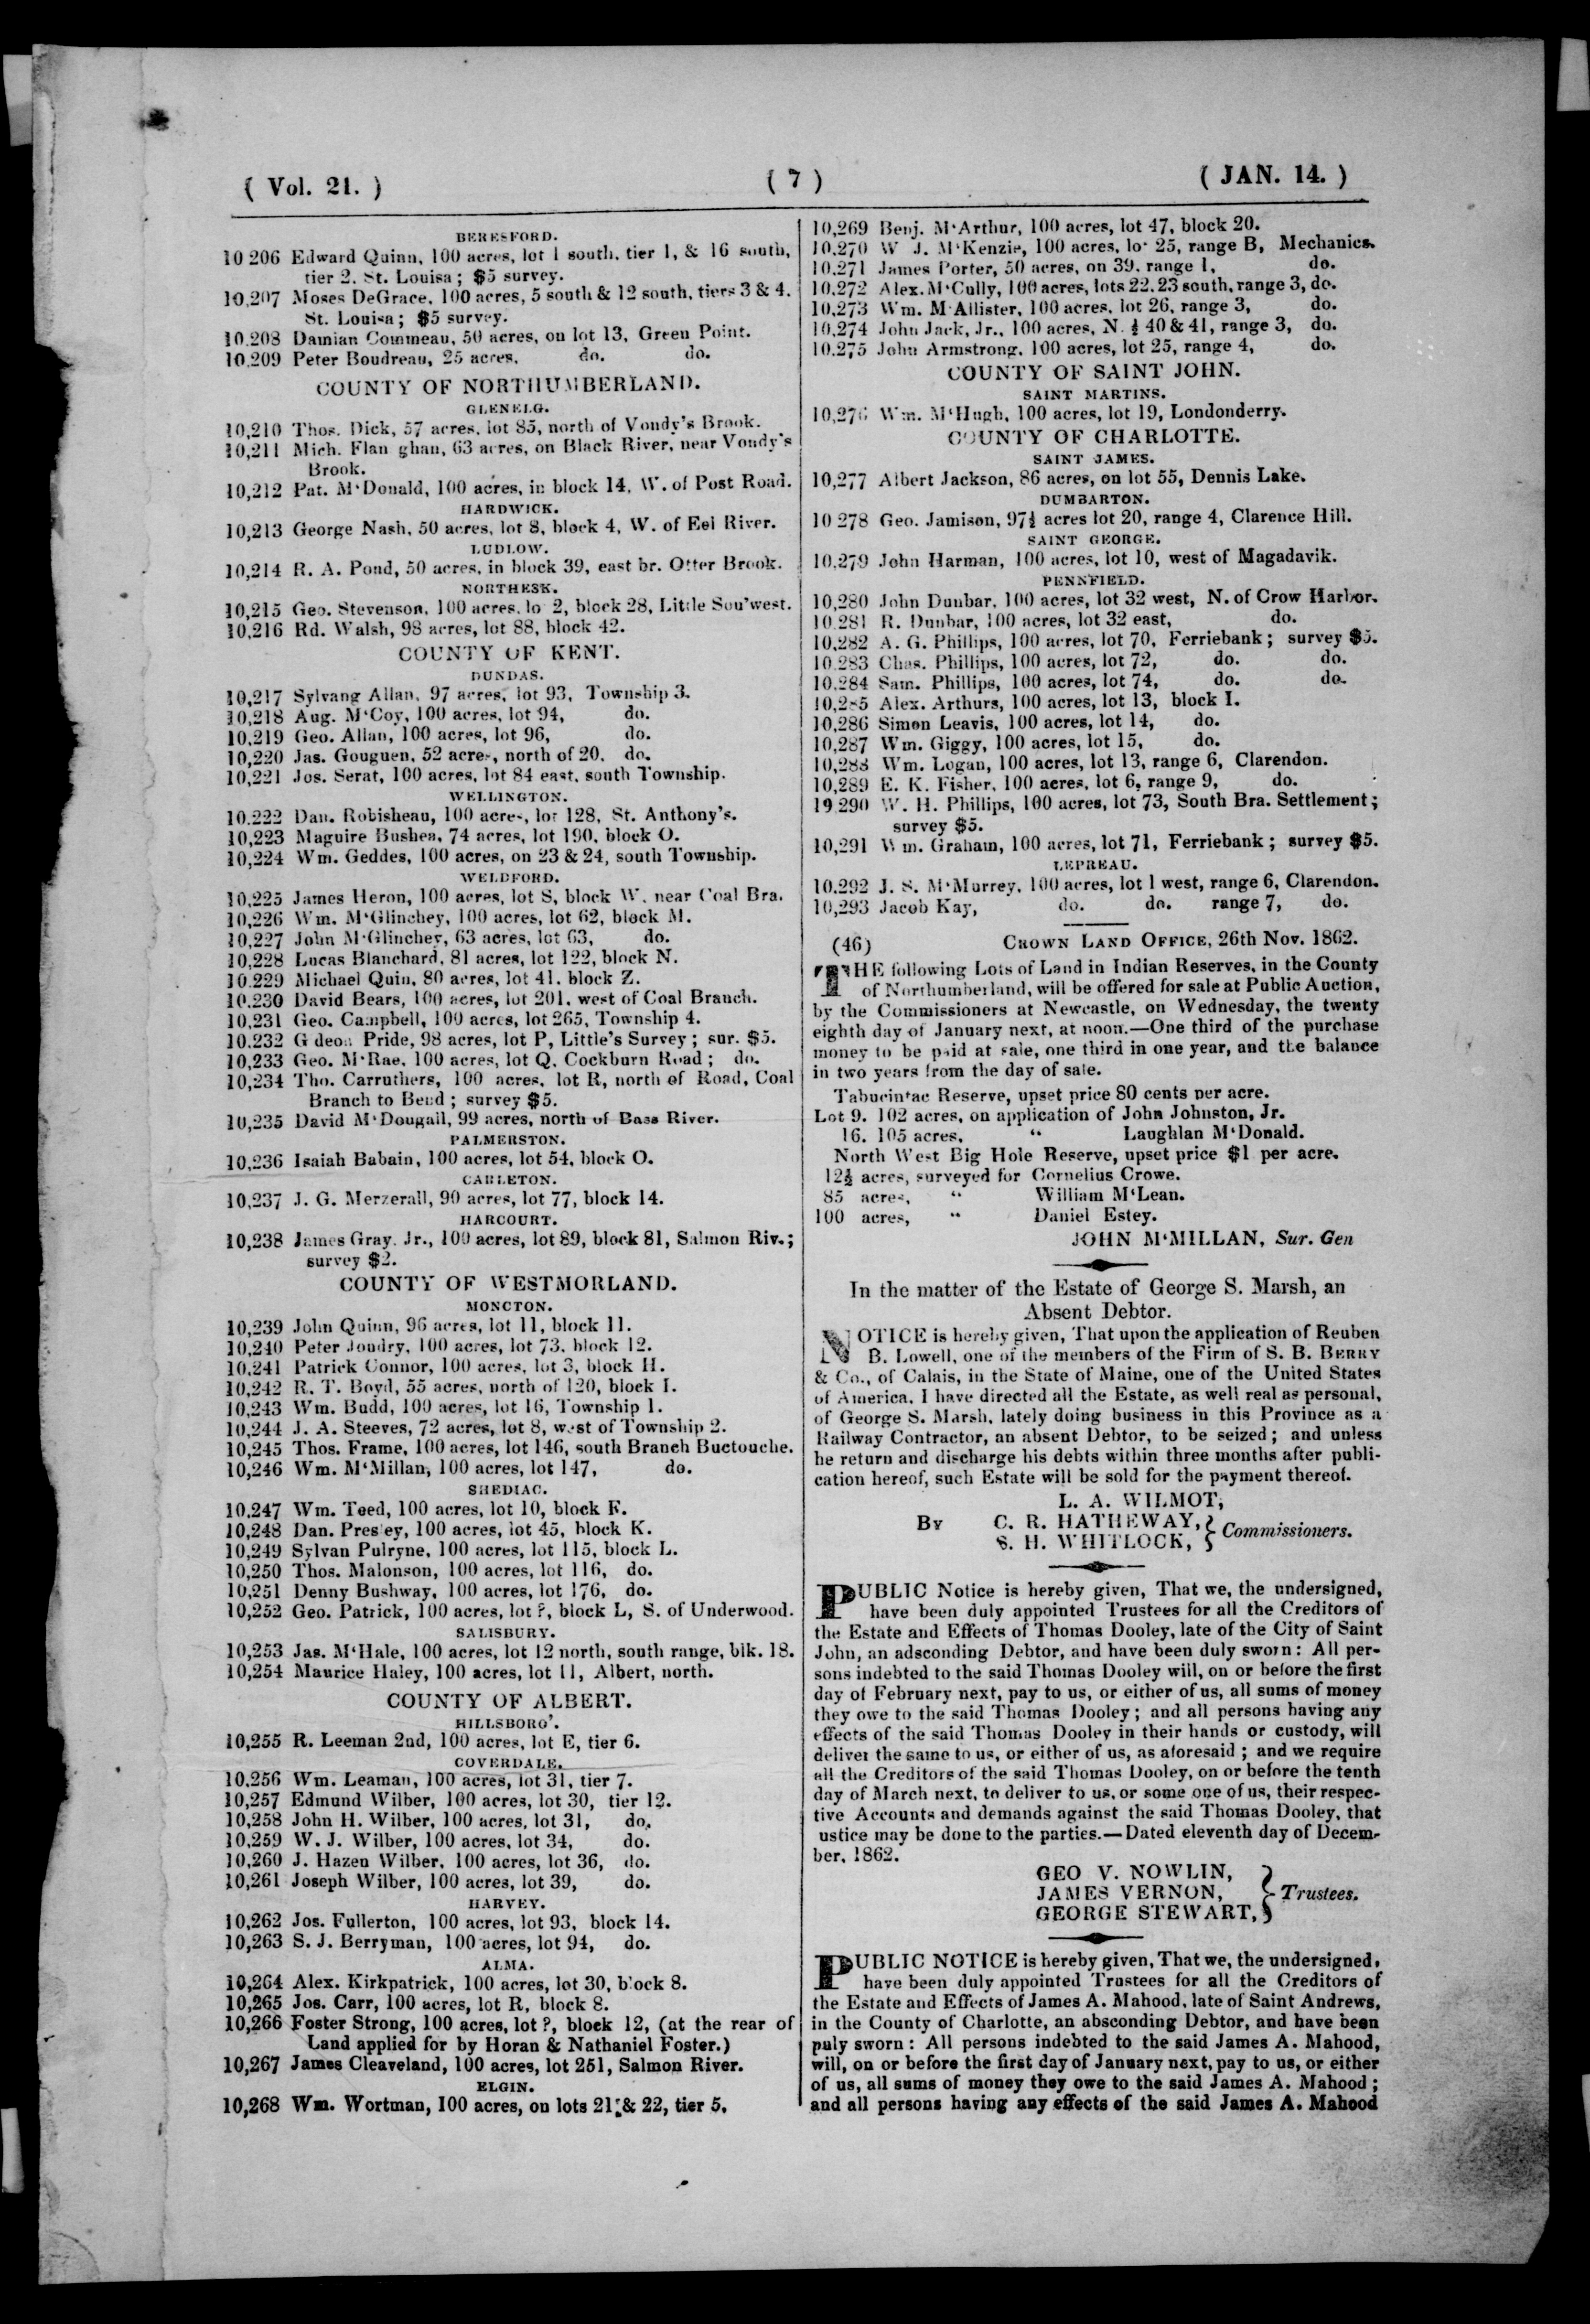 ( Vol. 21. )
( 7 )
( JAN. 14. )
BERESFORD.
10 206 Edward Quinn, 100 acres, lot 1 south, tier 1, & 16 south,
tier 2. St. Louisa; $5 survey.
10,207 Moses DeGrace, 100 acres, 5 south & 12 south, tiers 3 & 4.
St. Louisa; $5 survey.
10.208 Damian Commeau, 50 acres, on lot 13, Green Point.
10.209 Peter Boudreau, 25 acres, do. do.
COUNTY OF NORTHUMBERLAND.
GLENELG.
10,210 Thos. Dick, 57 acres, lot 85, north of Vondy's Brook.
10,211 Mich. Flan ghan, 63 acres, on Black River, near Vondy's
Brook.
10,212 Pat. M'Donald, 100 acres, in block 14, W. of Post Road.
HARDWICK.
10,213 George Nash, 50 acres, lot 8, block 4, W. of Eel River.
LUDLOW.
10,214 R. A. Pond, 50 acres, in block 39, east br. Otter Brook.
NORTHESK.
10,215 Geo. Stevenson, 100 acres, lo 2, block 28, Little Sou'west.
10,216 Rd. Walsh, 98 acres, lot 88, block 42.
COUNTY OF KENT.
DUNDAS.
10,217 Sylvang Allan, 97 acres, lot 93, Township 3.
10,218 Aug. M'Coy, 100 acres, lot 94, do.
10,219 Geo. Allan, 100 acres, lot 96, do.
10,220 Jas. Gouguen, 52 acres, north of 20, do.
10,221 Jos. Serat, 100 acres, lot 84 east, south Township.
WELLINGTON.
10.222 Dan. Robisheau, 100 acres, lot 128, St. Anthony's.
10,223 Maguire Bushea, 74 acres, lot 190, block O.
10,224 Wm. Geddes, 100 acres, on 23 & 24, south Township.
WELDFORD.
10,225 James Heron, 100 acres, lot S, block W. near Coal Bra.
10,226 Wm. M'Glinchey, 100 acres, lot 62, block M.
10,227 John M'Glinchey, 63 acres, lot 63, do.
10,228 Lucas Blanchard, 81 acres, lot 122, block N.
10.229 Michael Quin, 80 acres, lot 41, block Z.
10,230 David Bears, 100 acres, lot 201, west of Coal Branch.
10,231 Geo. Campbell, 100 acres, lot 265, Township 4.
10.232 G deon Pride, 98 acres, lot P, Little's Survey; sur. $5.
10,233 Geo. M'Rae, 100 acres, lot Q, Cockburn Road; do.
10,234 Tho. Carruthers, 100 acres, lot R, north of Road, Coal
Branch to Bend; survey $5.
10,235 David M'Dougall, 99 acres, north of Bass River.
PALMERSTON.
10,236 Isaiah Babain, 100 acres, lot 54, block O.
CARLETON.
10,237 J. G. Merzerall, 90 acres, lot 77, block 14.
HARCOURT.
10,238 James Gray, Jr., 100 acres, lot 89, block 81, Salmon Riv.;
survey $2.
COUNTY OF WESTMORLAND.
MONCTON.
10,239 John Quinn, 96 acres, lot 11, block 11.
10,240 Peter Joudry, 100 acres, lot 73, block 12.
10,241 Patrick Connor, 100 acres, lot 3, block H.
10,242 R. T. Boyd, 55 acres, north of 120, block I.
10,243 Wm. Budd, 100 acres, lot 16, Township 1.
10,244 J. A. Steeves, 72 acres, lot 8, west of Township 2.
10,245 Thos. Frame, 100 acres, lot 146, south Branch Buctouche.
10,246 Wm. M'Millan, 100 acres, lot 147, do.
SHEDIAC.
10,247 Wm. Teed, 100 acres, lot 10, block F.
10,248 Dan. Pres ey, 100 acres, lot 45, block K.
10,249 Sylvan Pulryne, 100 acres, lot 115, block L.
10,250 Thos. Malonson, 100 acres, lot 116, do.
10,251 Denny Bushway, 100 acres, lot 176, do.
10,252 Geo. Patrick, 100 acres, lot ?, block L, S. of Underwood.
SALISBURY.
10,253 Jas. M'Hale, 100 acres, lot 12 north, south range, blk. 18.
10,254 Maurice Haley, 100 acres, lot 11, Albert, north.
COUNTY OF ALBERT.
HILLSBORO'.
10,255 R. Leeman 2nd, 100 acres, lot E, tier 6.
COVERDALE.
10.256 Wm. Leaman, 100 acres, lot 31, tier 7.
10,257 Edmund Wilber, 100 acres, lot 30, tier 12.
10,258 John H. Wilber, 100 acres, lot 31, do.
10,259 W. J. Wilber, 100 acres, lot 34, do.
10,260 J. Hazen Wilber, 100 acres, lot 36, do.
10,261 Joseph Wilber, 100 acres, lot 39, do.
HARVEY.
10,262 Jos. Fullerton, 100 acres, lot 93, block 14.
10,263 S. J. Berryman, 100 acres, lot 94, do.
ALMA.
10,264 Alex. Kirkpatrick, 100 acres, lot 30, block 8.
10,265 Jos. Carr, 100 acres, lot R, block 8.
10,266 Foster Strong, 100 acres, lot ?, block 12, (at the rear of
Land applied for by Horan & Nathaniel Foster.)
10,267 James Cleaveland, 100 acres, lot 251, Salmon River.
ELGIN.
10,268 Wm. Wortman, 100 acres, on lots 21 & 22, tier 5,
10,269 Benj. M'Arthur, 100 acres, lot 47, block 20.
10.270 W J. M'Kenzie, 100 acres, lot 25, range B, Mechanics.
10.271 James Porter, 50 acres, on 39, range 1, do.
10,272 Alex. M'Cully, 100 acres, lots 22, 23 south, range 3, do.
10,273 Wm. M'Allister, 100 acres, lot 26, range 3, do.
10,274 John Jack, Jr., 100 acres, N. ½ 40 & 41, range 3, do.
10.275 John Armstrong, 100 acres, lot 25, range 4, do.
COUNTY OF SAINT JOHN.
SAINT MARTINS.
10,276 Wm. M'Hugh, 100 acres, lot 19, Londonderry.
COUNTY OF CHARLOTTE.
SAINT JAMES.
10,277 Albert Jackson, 86 acres, on lot 55, Dennis Lake.
DUMBARTON.
10 278 Geo. Jamison, 97½ acres lot 20, range 4, Clarence Hill.
SAINT GEORGE.
10,279 John Harman, 100 acres, lot 10, west of Magadavik.
PENNFIELD.
10,280 John Dunbar, 100 acres, lot 32 west, N. of Crow Harbor.
10 281 R. Dunbar, 100 acres, lot 32 east, do.
10,282 A. G. Phillips, 100 acres, lot 70, Ferriebank; survey $5.
10.283 Chas. Phillips, 100 acres, lot 72, do. do.
10,284 Sam. Phillips, 100 acres, lot 74, do. do.
10,285 Alex. Arthurs, 100 acres, lot 13, block I.
10,286 Simon Leavis, 100 acres, lot 14, do.
10,287 Wm. Giggy, 100 acres, lot 15, do.
10,288 Wm. Logan, 100 acres, lot 13, range 6, Clarendon.
10,289 E. K. Fisher, 100 acres, lot 6, range 9, do.
19 290 W. H. Phillips, 100 acres, lot 73, South Bra. Settlement;
survey $5.
10,291 Wm. Graham, 100 acres, lot 71, Ferriebank; survey $5.
LEPREAU.
10.292 J. S. M'Murrey, 100 acres, lot 1 west, range 6, Clarendon.
10,293 Jacob Kay, do. do. range 7, do.
(46) CROWN LAND OFFICE, 26th Nov. 1862.
THE following Lots of Land in Indian Reserves, in the County
of Northumberland, will be offered for sale at Public Auction,
by the Commissioners at Newcastle, on Wednesday, the twenty
eighth day of January next, at noon.—One third of the purchase
money to be paid at sale, one third in one year, and the balance
in two years from the day of sale.
Tabucintac Reserve, upset price 80 cents per acre.
Lot 9. 102 acres, on application of John Johnston, Jr.
16. 105 acres, “ Laughlan M'Donald.
North West Big Hole Reserve, upset price $1 per acre.
12½ acres, surveyed for Cornelius Crowe.
85 acres, “ William M'Lean.
100 acres, “ Daniel Estey.
JOHN M'MILLAN, Sur. Gen
In the matter of the Estate of George S. Marsh, an
Absent Debtor.
NOTICE is hereby given, That upon the application of Reuben
B. Lowell, one of the members of the Firm of S. B. BERRY
& Co., of Calais, in the State of Maine, one of the United States
of America, I have directed all the Estate, as well real as personal,
of George S. Marsh, lately doing business in this Province as a
Railway Contractor, an absent Debtor, to be seized; and unless
he return and discharge his debts within three months after publi-
cation hereof, such Estate will be sold for the payment thereof.
L. A. WILMOT,
By C. R. HATHEWAY, } Commissioners.
S. H. WHITLOCK,
PUBLIC Notice is hereby given, That we, the undersigned,
have been duly appointed Trustees for all the Creditors of
the Estate and Effects of Thomas Dooley, late of the City of Saint
John, an adsconding Debtor, and have been duly sworn: All per-
sons indebted to the said Thomas Dooley will, on or before the first
day of February next, pay to us, or either of us, all sums of money
they owe to the said Thomas Dooley; and all persons having any
effects of the said Thomas Dooley in their hands or custody, will
deliver the same to us, or either of us, as aforesaid; and we require
all the Creditors of the said Thomas Dooley, on or before the tenth
day of March next, to deliver to us, or some one of us, their respec-
tive Accounts and demands against the said Thomas Dooley, that
ustice may be done to the parties.—Dated eleventh day of Decem-
ber, 1862.
GEO V. NOWLIN,
JAMES VERNON, } Trustees.
GEORGE STEWART,
PUBLIC NOTICE is hereby given, That we, the undersigned,
have been duly appointed Trustees for all the Creditors of
the Estate and Effects of James A. Mahood, late of Saint Andrews,
in the County of Charlotte, an absconding Debtor, and have been
puly sworn: All persons indebted to the said James A. Mahood,
will, on or before the first day of January next, pay to us, or either
of us, all sums of money they owe to the said James A. Mahood;
and all persons having any effects of the said James A. Mahood